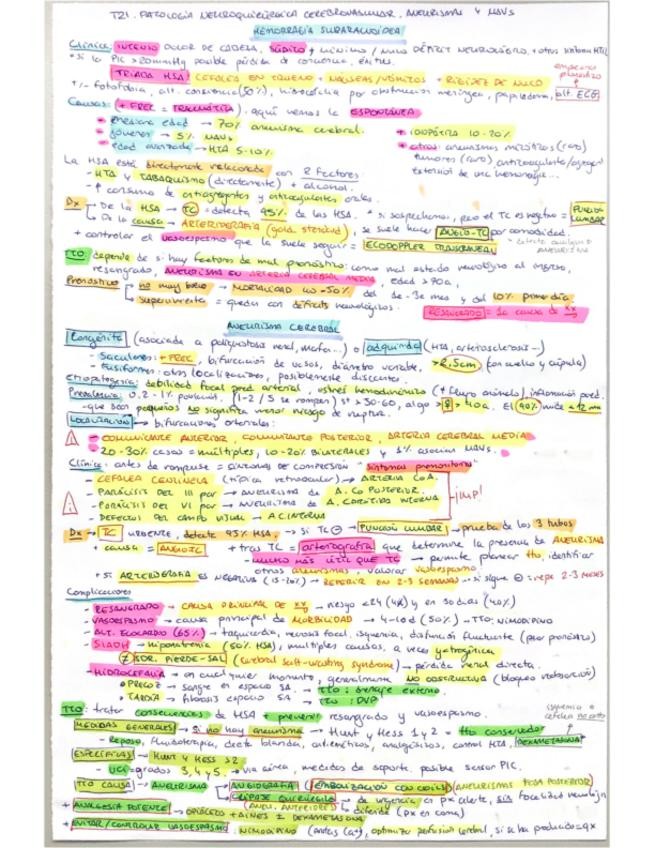 T21. PATOLOGÍA NEUROQUIRÚRGICA CEREBROVASCULAR. ANEURISMAS Y MAVs
HEMORRAGIA SUBARACNOIDEA
Clínica: INTENSO DOLOR DE CABEZA, SÚBITO y mínimo / nulo DÉFICIT NEUROLÓGICO. + otros síntomas HTIC
+ si la PIC > 20mmHg posible pérdida de conciencia,
TRIADA HSA: CEFALEA EN TRUENO + NÁUSEAS/VÓMITOS + RIGIDEZ DE NUCA
+/- fotofobia, alt. consciencia (50%), hidrocefalia por obstrucción meníngea, papiledema, alt. ECG
Causas: (+ FREC = TRAUMÁTICA). aquí vemos la ESPONTÁNEA
• mediana edad → 70% aneurisma cerebral. • IDIOPÁTICA 10-20%
• jóvenes → 5% MAVs • otros: aneurismas micóticos (raro)
• edad avanzada → HTA 5-10% tumores (raro) anticoagulante/
extensión de una hemorragia...
La HSA está directamente relacionada con 2 factores:
- HTA y TABAQUISMO (directamente) + alcohol.
- ↑ consumo de antiagregantes y anticoagulantes orales.
Dx → De la HSA → TC = detecta 95% de las HSA. * si sospechamos, pero el TC es negativo = PUNCIÓN LUMBAR
→ De la causa → ARTERIOGRAFÍA (gold standard), se suele hacer ANGIO-TC por comodidad.
+ controlar el vasoespasmo que la suele seguir = ECODOPPLER TRANSCRANEAL
TTO: depende de si hay factores de mal pronóstico: como mal estado neurológico al ingreso,
resangrado, ANEURISMA EN ARTERIA CEREBRAL MEDIA, edad > 70a,
Pronóstico no muy bueno → MORTALIDAD 40-50% del de - 3er mes y del 10% primer día
supervivientes = quedan con déficits neurológicos. RESANGRADO = 1a causa de
ANEURISMA CEREBRAL
Congénito (asociada a poliquistosis renal, ) o adquirida (HTA, arteriosclerosis...)
- Saculares: + FREC, bifurcación de vasos, diámetro variable, > 2,5cm (con cuello y cúpula)
- Fusiformes: otras localizaciones, posiblemente disecantes.
Etiopatogenia: debilidad focal pared arterial. estrés hemodinámico (+ flujo anómalo), inflamación pared.
Prevalencia: 0.2 - 1% población. (1-2/5 se rompen) 30-60, algo > ♀ > 40a. El 90% mide < 12 mm
- que sean pequeños no significa menor riesgo de ruptura.
LOCALIZACIÓN → bifurcaciones arteriales:
- COMUNICANTE ANTERIOR, COMUNICANTE POSTERIOR, ARTERIA CEREBRAL MEDIA
- 20-30% casos = múltiples, 10-20% BILATERALES y 1% asocian MAVs.
Clínica: antes de romperse = SÍNTOMAS DE COMPRESIÓN "síntomas premonitorios"
- CEFALEA CENTINELA (típica retroocular) → ARTERIA CoA.
- PARÁLISIS DEL III par → ANEURISMA DE A. CO POSTERIOR.
- PARÁLISIS DEL VI par → ANEURISMA DE A. CARÓTIDA INTERNA
- DEFECTOS DEL CAMPO VISUAL → A.C. INTERNA
IMP!
Dx → TC URGENTE, detecta 95% HSA, → si TC ⊖ → PUNCIÓN LUMBAR → prueba de los 3 tubos
+ causa = ANGIOTC + tras TC = arteriografía que determine la presencia de ANEURISMA
- MUCHO MÁS ÚTIL QUE TC → permite planear tto, identificar
otros aneurismas, valorar vasoespasmo.
+ si ARTERIOGRAFÍA ES NEGATIVA (15-20%) → REPETIR EN 2-3 SEMANAS → si sigue ⊖ : repe 2-3 MESES
Complicaciones
- RESANGRADO → CAUSA PRINCIPAL DE → riesgo <24 (4%) y en 30 días (40%)
- VASOESPASMO → causa principal de MORBILIDAD → 4-10d (50%) → TTO: NIMODIPINO
- ALT. ECOCARDIO (65%) → taquicardia, necrosis focal, isquemia, disfunción fluctuante (peor pronóstico)
- SIADH → hiponatremia (50% HSA), múltiples causas, a veces yatrogénica
≠ SDR. PIERDE-SAL (cerebral salt-wasting syndrome) → pérdida renal directa.
- HIDROCEFALIA → en cualquier momento, generalmente NO OBSTRUCTIVA (bloqueo reabsorción)
• PRECOZ → sangre en espacio SA. → TTO: drenaje externo.
• TARDÍA → fibrosis espacio SA → TTO: DVP
TTO: tratar consecuencias de HSA + prevenir resangrado y vasoespasmo.
MEDIDAS GENERALES → si no hay aneurisma → Hunt y Hess 1 y 2 = tto conservador
- Reposo, fluidoterapia, dieta blanda, antieméticos, analgésicos, control HTA, DEXAMETASONA
ESPECÍFICAS → HUNT Y HESS ≥2
- UCI = grados 3, 4 y 5. → vía aérea, medidas de soporte, posible sensor PIC.
TTO CAUSA → ANEURISMA → ANGIOGRAFÍA (EMBOLIZACIÓN CON COILS) (ANEURISMAS FOSA POSTERIOR)
CLIPAJE QUIRÚRGICO → de urgencia en px alerta, sin focalidad neurológica
(ANEU. ANTERIORES) → diferida (px en coma)
+ ANALGESIA POTENTE → OPIÁCEO + AINES ± DEXAMETASONA
+ EVITAR/CONTROLAR VASOESPASMO: NIMODIPINO (antag Ca²⁺), optimizar perfusión cerebral, si se ha producido = qx